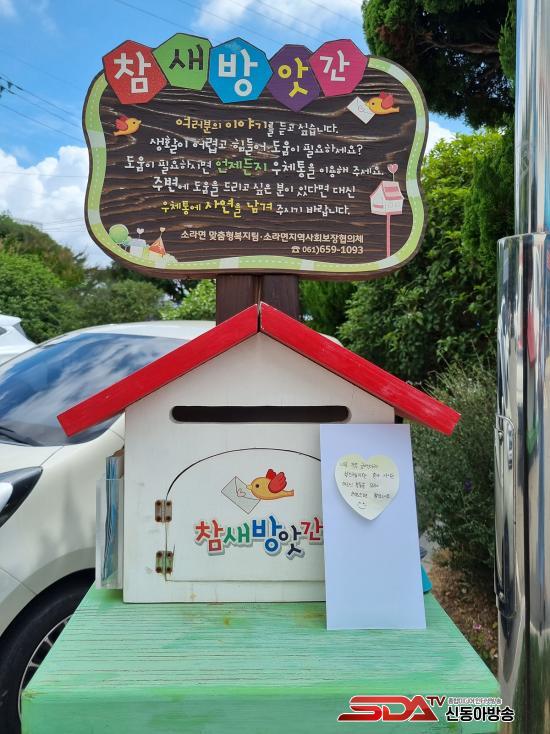 참새방앗간
여러분의 이야기를 듣고 싶습니다.
생활이 어렵고 힘들어 도움이 필요하세요?
도움이 필요하시면 언제든지 우체통을 이용해 주세요.
주변에 도움을 드리고 싶은 분이 있다면 대신
우체통에 사연을 남겨 주시기 바랍니다.
소라면 맞춤형복지팀·소라면지역사회보장협의체
☎ 061)659-1093
참새방앗간
SDATV 종합미디어 인터넷방송
신동아방송